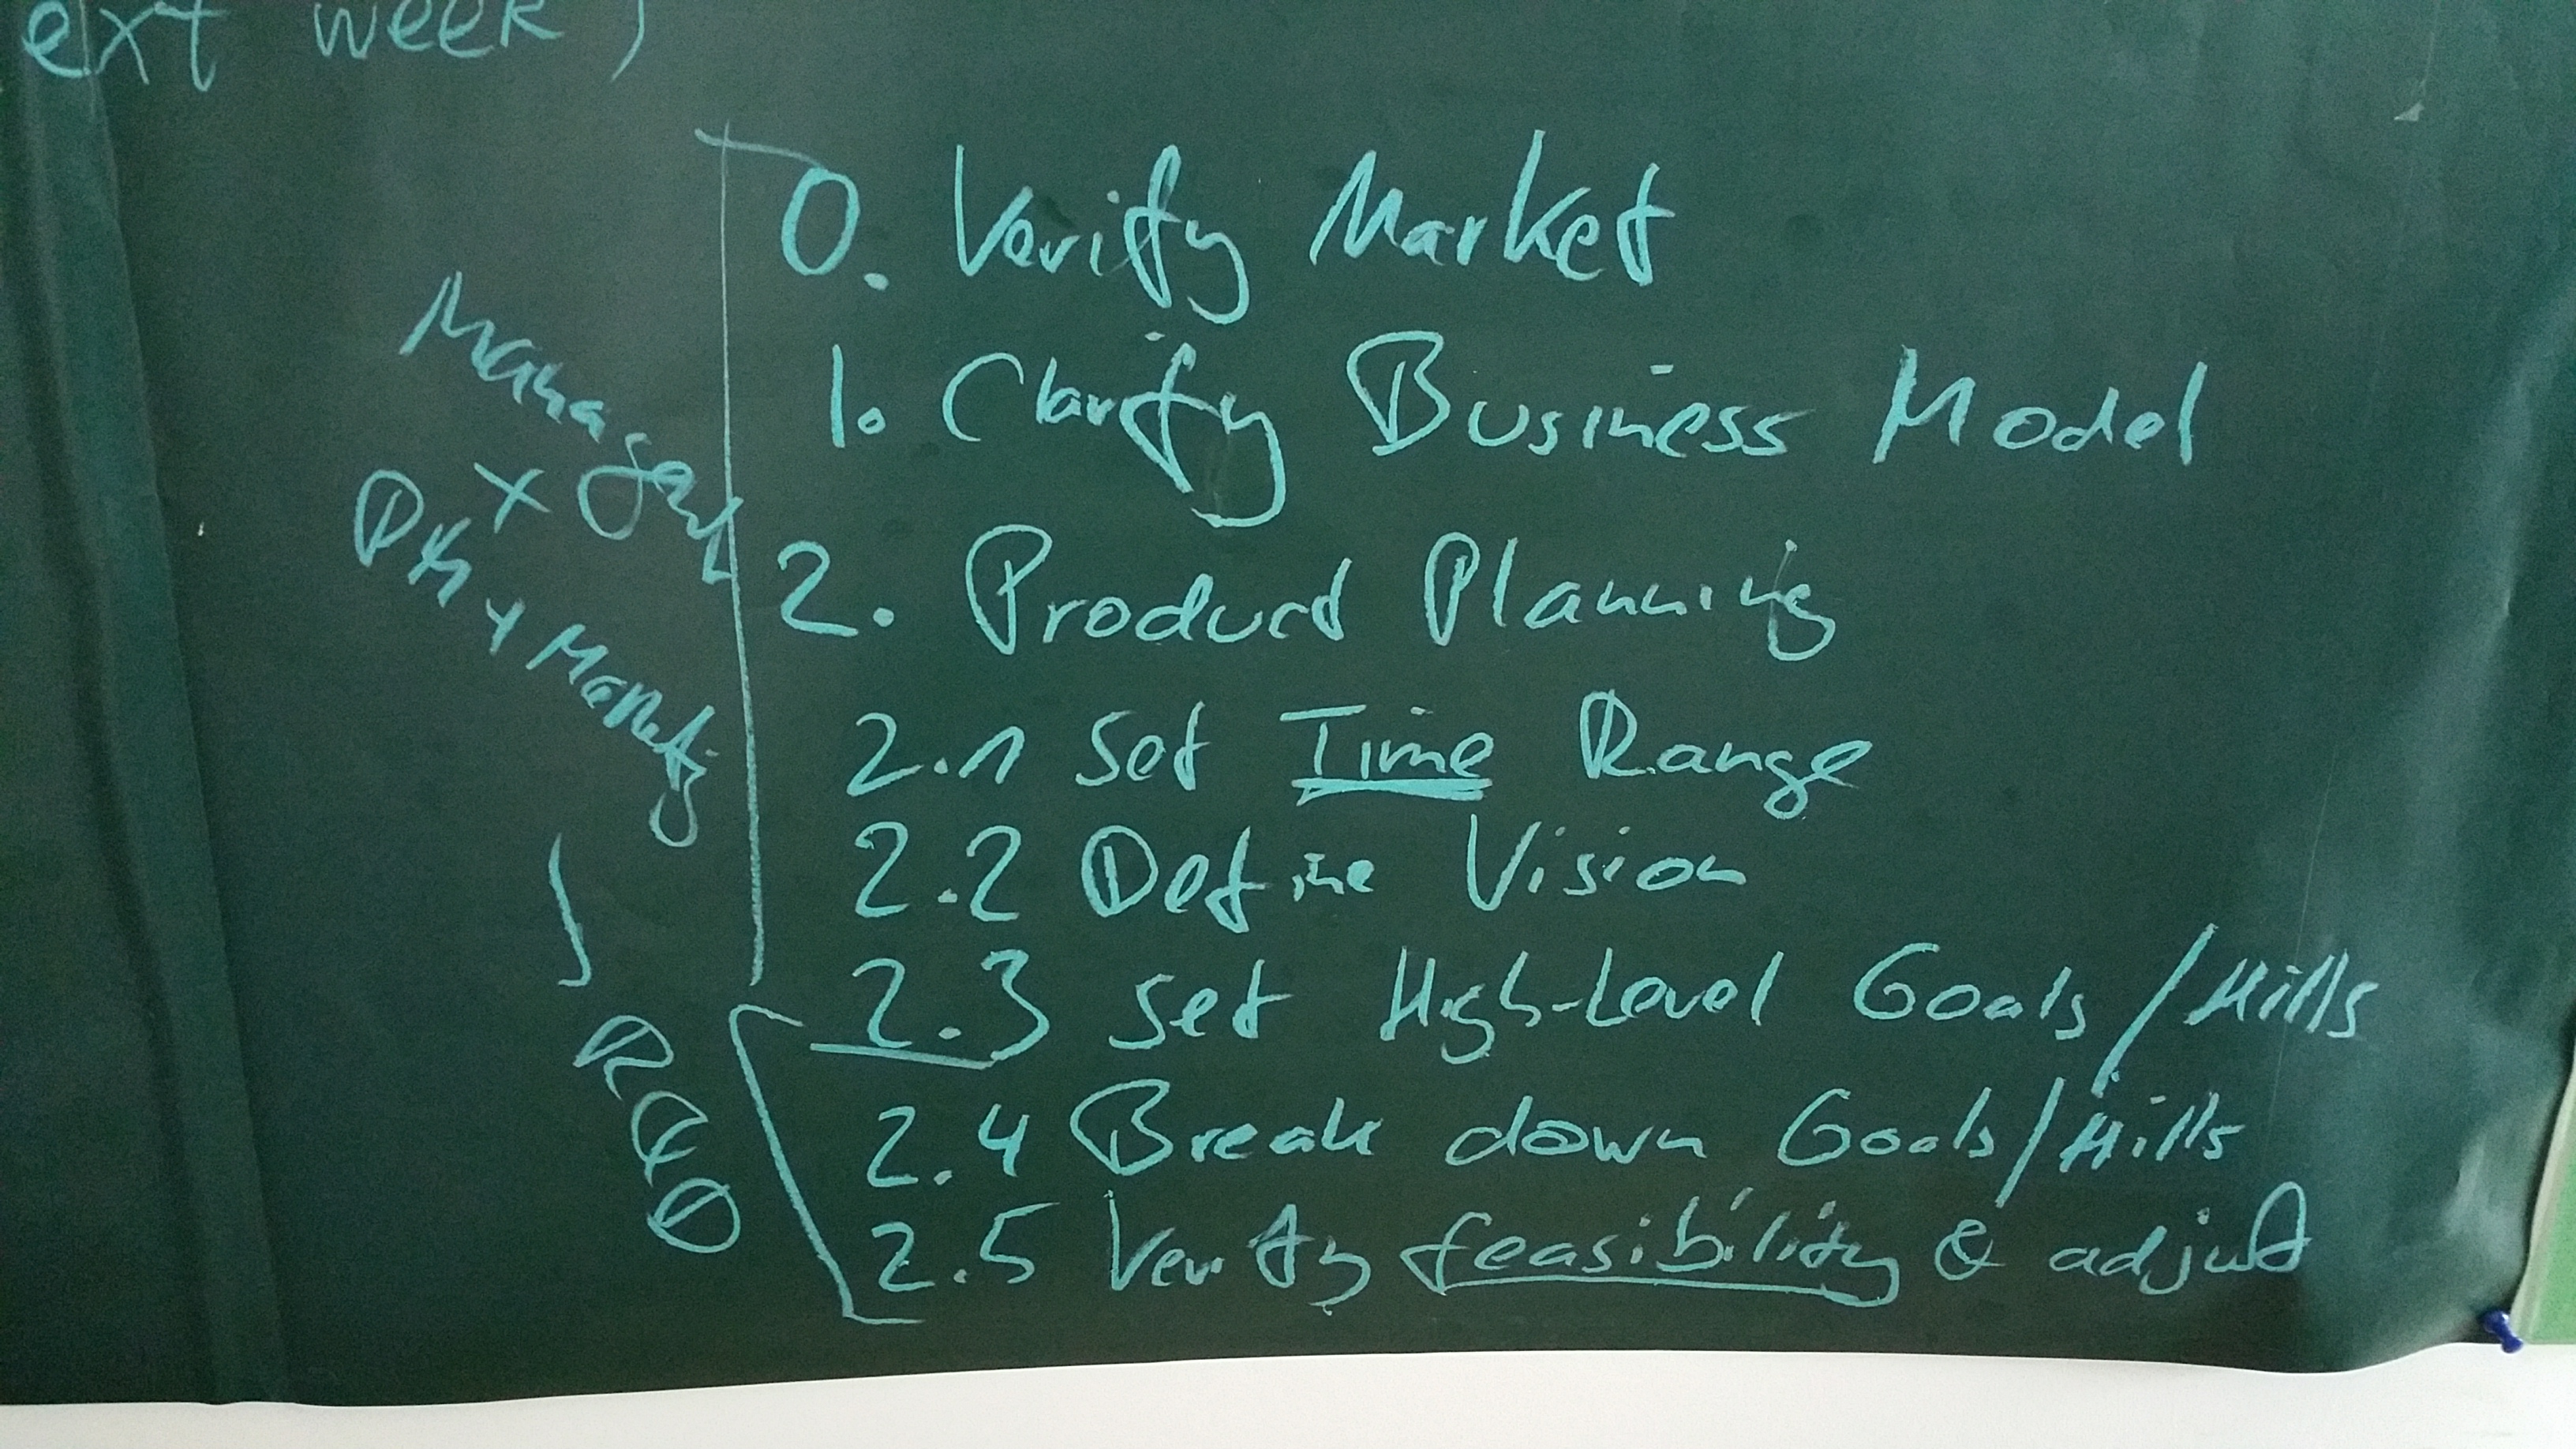 ext week)
0. Verify Market
1. Clarify Business Model
2. Product Planning
2.1 Set Time Range
2.2 Define Vision
2.3 Set High-Level Goals/Hills
2.4 Break down Goals/Hills
2.5 Verify feasibility & adjust
+
PM + Marketing
R&D